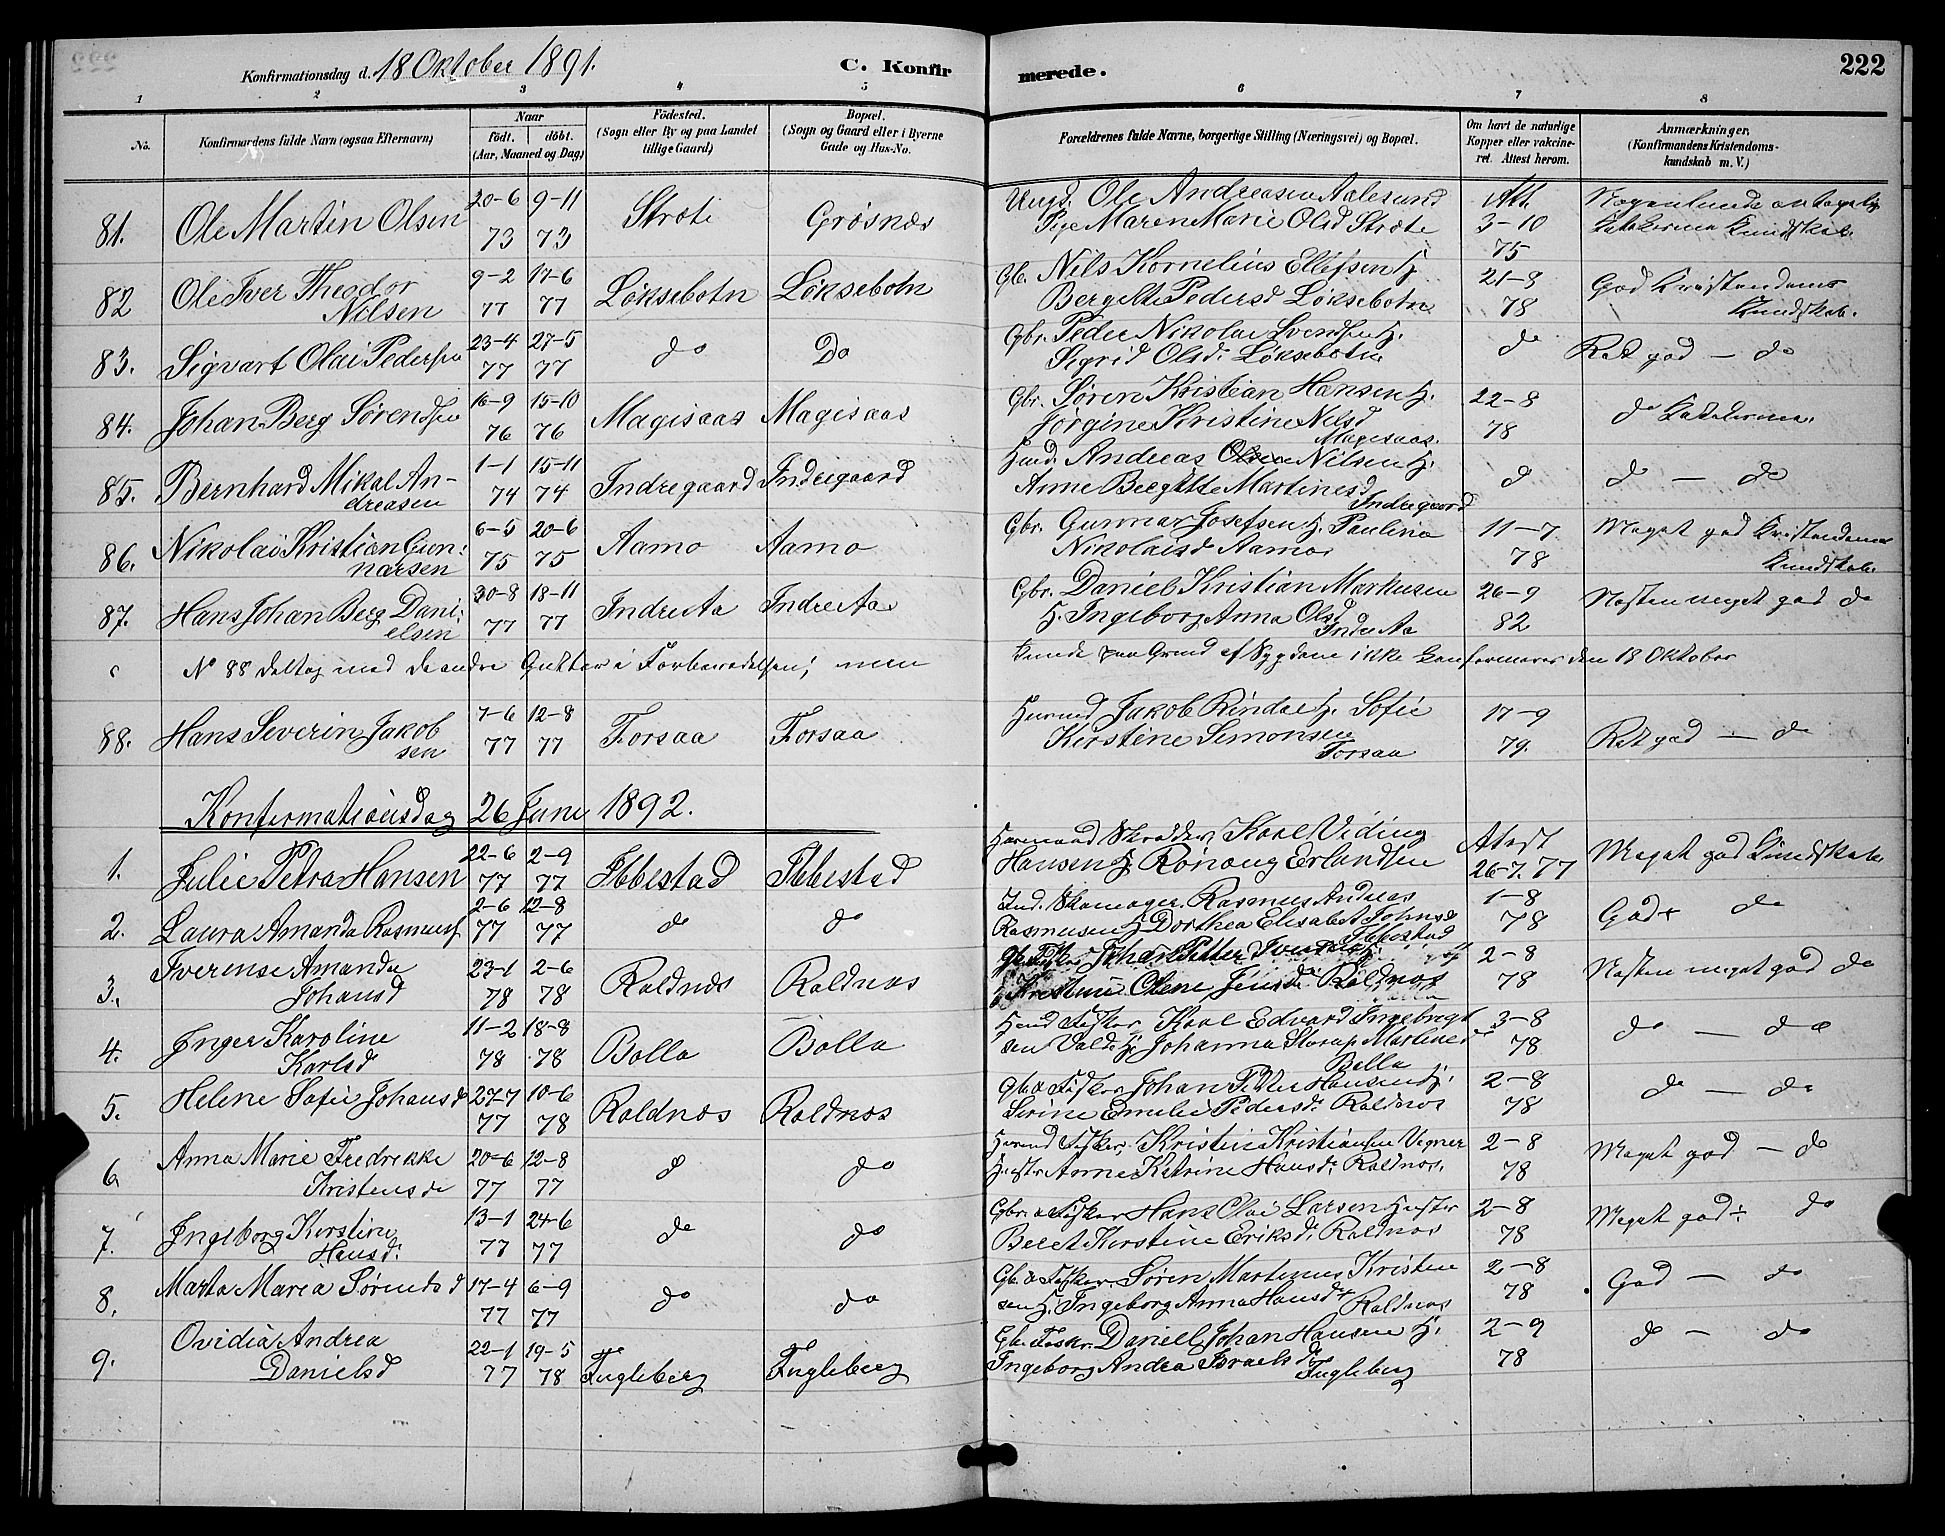 222
Konfirmationsdag d. 18 Oktober 1891. C. Konfir merede.
1 2 3 4 5 6 7 8
No. Konfirmandens fulde Navn (ogsaa Efternavn) Naar født. døbt. (Aar, Maaned og Dag) Fødested. (Sogn eller By og paa Landet tillige Gaard) Bopæl. (Sogn og Gaard eller i Byerne Gade og Hus-No. Forældrenes fulde Navne, borgerlige Stilling (Næringsvei) og Bopæl. Om havt de naturlige Kopper eller vakcineret. Attest herom. Anmærkninger, (Konfirmandens Kristendomskundskab m. V.)
81. Ole Martin Olsen 20-6 73 9-11 73 Strøte Grøsnæs Ungk. Ole Andreasen Aalesund
Pige Maren Marie Olsd Strøte Att. 3-10 75 Nogenlunde antagelig Kundskab.
82 Ole Iver Theodor Nilsen 9-2 77 17-6 77 Løksebotn Løksebotn Gb. Nils Kornelius Ellefsen H.
Bergitte Pedersd Løksebotn 21-8 78 God Kristendoms Kundskab.
83. Sigvart Olai Pedersen 23-4 77 27-5 77 do Do Gbr. Peder Nikolai Svendsen H.
Sigrid Olsd. Løksebotn do Ret god — do
84. Johan Berg Sørensen 16-9 76 15-10 76 Magisaas Magisaas Gbr. Søren Kristian Hansen H.
Jørgine Kristine Nilsd Magisaas. 22-8 78 do
85. Bernhard Mikal Andreasen 1-1 74 15-11 74 Indregaard Indregaard Andreas Nilsen H.
Anne Bergitte Martinesd Indregaard do do — do
86. Nikolai Kristian Gunnarsen 6-5 75 20-6 75 Aamo Aamo Gbr. Gunnar Josefsen H. Paulina
Nikolaisd Aamo. 11-7 78 Meget god Kristendoms Kundskab.
87. Hans Johan Berg Danielsen 30-8 77 18-11 77 Indre Aa Indre Aa Gbr. Daniel Kristian Markusen
H. Ingeborg Anna Olsd Indre Aa 26-9 82 Næsten meget god do
No 88 deltog med de andre Gutter i Forberedelsen; men kunde paa Grund af Sygdom ikke konfirmeres den 18 Oktober
88. Hans Severin Jakobsen 7-6 77 12-8 77 Forsaa Forsaa Jakob Rindal H. Sofie
Kirstine Simonsen Forsaa 17-9 79. Ret god — do
Konfirmationsdag 26 Juni 1892.
1. Julie Petra Hansen 22-6 77 2-9 77 Ibbestad Ibbestad Skrædder Karl Viding
Hansen H. Ronaug Erlandsen Attest 26-7. 77 Meget god Kundskab
2. Laura Amanda Rasmuss 2-6 77 12-8 77 do do Ind. Skomager. Rasmus Andreas
Rasmusen H Dorthea Elisabet Johnsd Ibbestad 1-8 78 God + do
3. Iverense Amanda Johansd 23-1 78 2-6 78 Roldnæs Roldnæs Johan Petter
Olene Jensd Roldnæs 2-8 78 Næsten meget god do
4. Inger Karoline Karlsd 11-2 78 18-8 78 Bolla Bolla Fisker Karl Edvard Ingebrigtsen
Vald H. Johanna Martinesd Bolla 3-8 78 do — do
5. Helene Sofie Johansd 27-7 77 10-6 78 Roldnæs Roldnæs Gbr & Fisker Johan Petter Hansen H.
Serine Emilie Pedersd. Roldnæs 2-8 78 do — do
6 Anna Marie Fredrikke Kristensd 20-6 77 12-8 77 do do Fisker. Kristen Kristiansen Vegner
Hustr. Anne Katrine Hansd. Roldnæs. 2-8 78 Meget god — do
7. Ingeborg Kirstine Hansd. 13-1 77 24-6 77 do do Gbr. & Fisker Hans Olai Larsen Hustr
Beret Kirstine Eriksd. Roldnæs 2-8 78 Meget god ÷ do
8. Marta Maria Sørensd 17-4 77 6-9 77 do do Gb. & Fisker. Søren Martinus Kristensen
H. Ingeborg Anna Hansd. Roldnæs 2-8 78 God — do
9. Ovidia Andrea Danielsd 22-1 77 19-5 78 Fugleberg Fugleberg Gbr. Fiskr. Daniel Johan Hansen H.
Ingeborg Andrea Israelsd Fugleberg 2-9 78 do — do